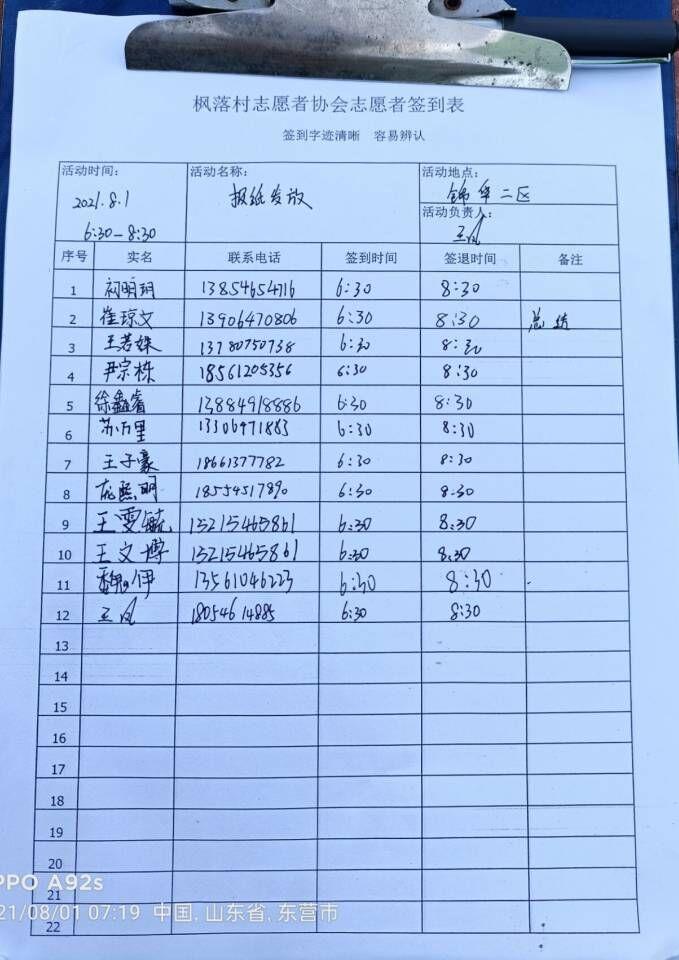 枫落村志愿者协会志愿者签到表
签到字迹清晰 容易辨认
活动时间: 活动名称: 活动地点:
2021.8.1 报纸发放 锦华二区
6:30-8:30 活动负责人:
王凤
序号 实名 联系电话 签到时间 签退时间 备注
1 祠明玥 13854654716 6:30 8:30
2 崔琼文 13906470806 6:30 8:30 总结
3 王若姝 13780750738 6:30 8:30
4 尹宗栋 18561205356 6:30 8:30
5 徐鑫睿 13884918886 6:30 8:30
6 苏万里 6:30 8:30
7 王子豪 18661377782 6:30 8:30
8 熙明 18554517890 6:30 8.30
9 王雯毓 15215465861 6:30 8:30
10 王文博 15215465861 6:30 8:30
11 魏伊 13561046223 6:30 8:30
12 王凤 18054614885 6:30 8:30
13
14
15
16
17
18
19
20
21
22
PPO A92s
21/08/01 07:19 中国, 山东省, 东营市